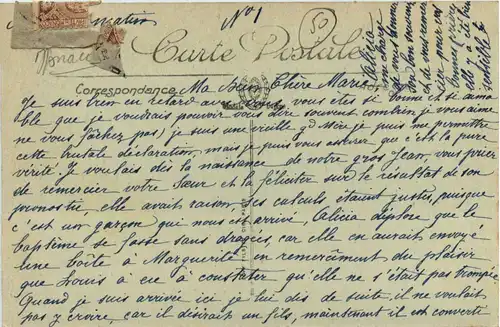 No 1
50
Carte Postale
Correspondance
Ma Bien Chère Marie
Je suis bien en retard avec vous, vous êtes si bonne et si aima
ble que je voudrais pouvoir vous dire souvent combien je vous aime
ne vous fâchez pas) je suis une vieille gd Mère je puis me permettre
cette brutale déclaration, mais je puis vous assurer que c'est la pure
vérité Je voulais dès la naissance de notre gros Jean, vous prier
de remercier votre Sœur et la féliciter sur le résultat de son
pronostic, elle avait raison, ses calculs étaient justes, puisque
c'est un garçon qui nous est arrivé, Alicia déplore que le
baptême se fasse sans dragées, car elle en aurait envoyé
une boîte à Marguerite en remerciement du plaisir
que Louis a eu à constater qu'elle ne s'était pas trompée
Quand je suis arrivée ici je lui dis de suite, il ne voulait
pas y croire, car il désirait un fils, maintenant il est converti
Alicia
me charge
de vous
son bon
et de vous